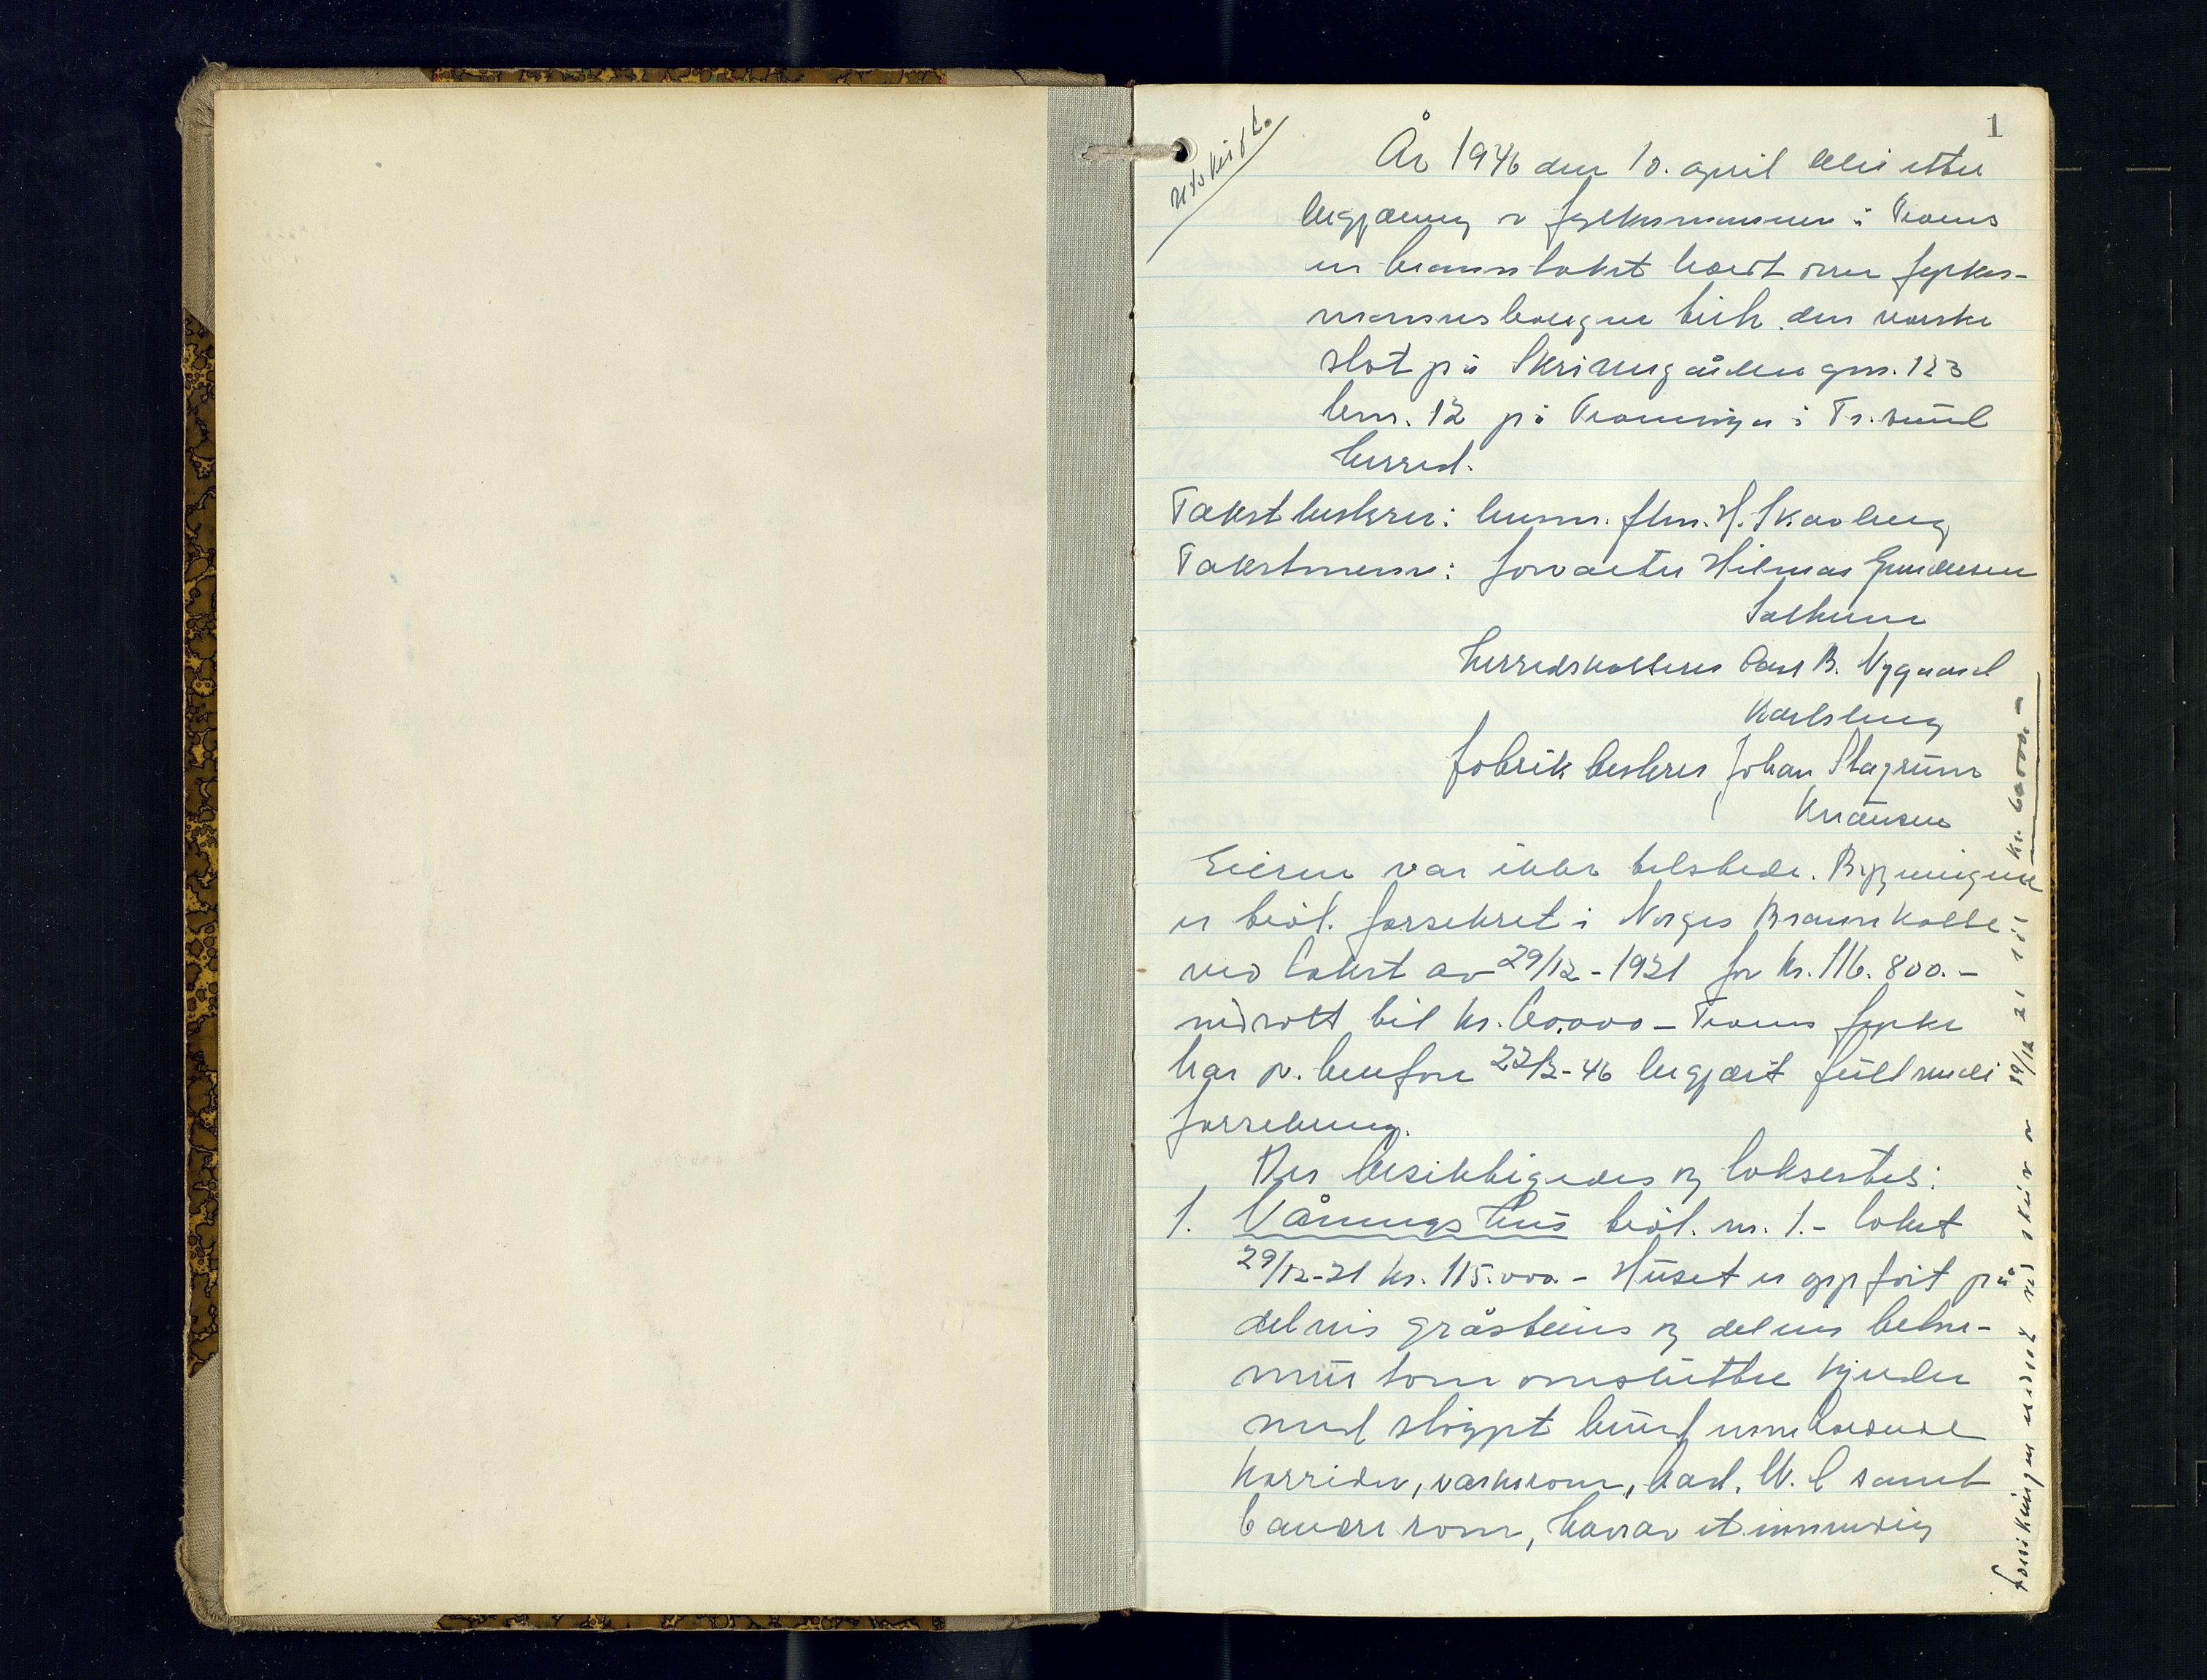 1
utskrift.
År 1946 den 10. april blei etter
begjæring av fylkesmannen i Troms
en branntakst holdt over fylkes-
mannsboligen tilh. den norske
stat på Skrivergården gnr. 123
bnr. 12 på Tromsøya i Tr.sund
herred.
Takstbestyrer: lensm. flm. H. Skavberg
Takstmenn: forvalter Hilmar Gundersen
Solheim
herredskasserer Carl B. Nygaard
Karlsberg
fabrikbestyrer Johan Stagrum
Knausen
Eieren var ikke tilstede. Bygningene
er tidl. forsikret i Norges Brannkasse
ved takst av 29/12-1921 for kr. 116.800.-
nedsatt til kr. 60.000 - Troms fylke
har pr. telefon 22/3-46 begjært full verdi
forsikring.
Der besiktigedes og takseertes:
1. Våningshus tidl. nr. 1.- takst
29/12-21 kr. 115.000 - Huset er oppført på
delvis gråsteins og delvis beton-
mur som omslutter kjeller
med støypt bund inneholdende
korridor, vaskerom, bad, W.C samt
6 andre rom, hvorav et innvendig
forsikringen nedsat ved skriv av 19/12 21 til kr. 60000 -